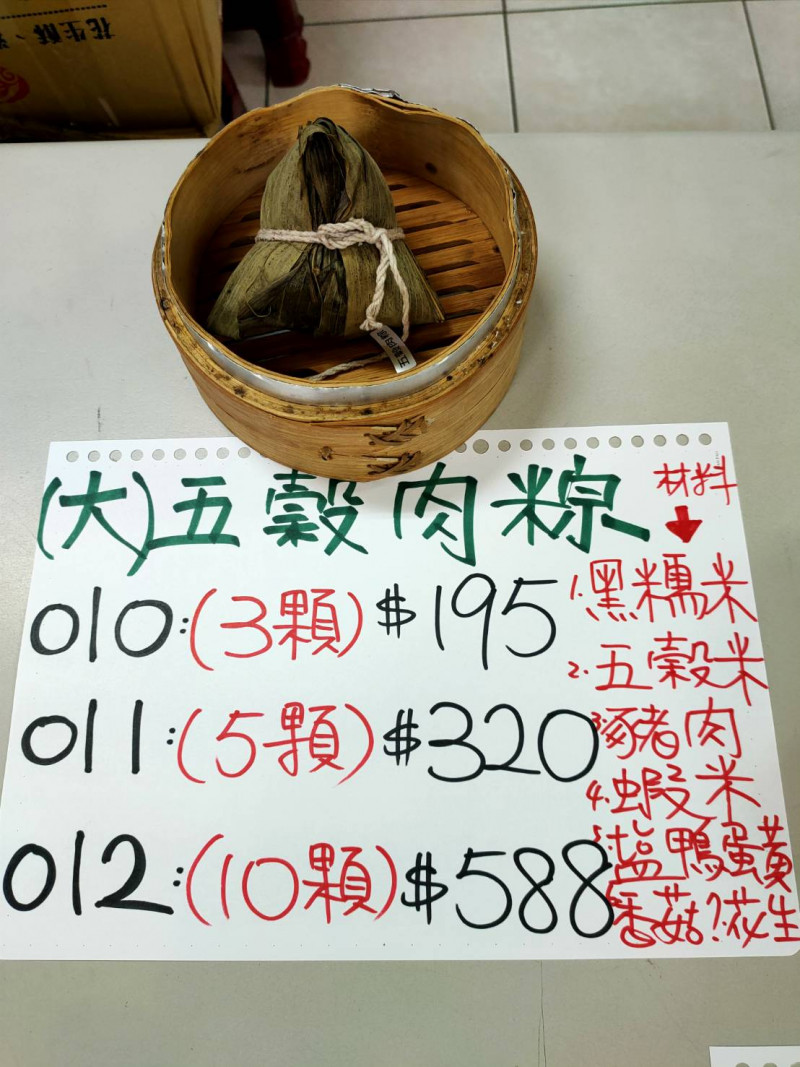 花生酥、
五穀肉粽
(大)五穀肉粽
010:(3顆) $195
011:(5顆) $320
012:(10顆) $588
材料
1.黑糯米
2.五穀米
3.豬肉
4.蝦米
5.塩鴨蛋黃
6.香菇7.花生